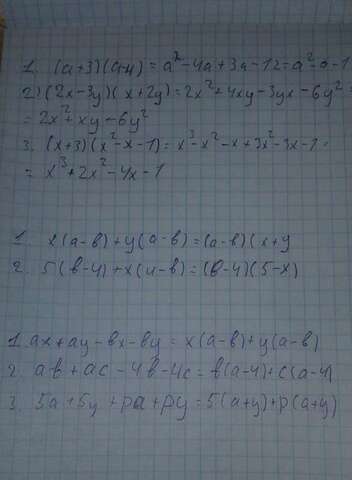 1. (a+3)(a-4) = a²-4a+3a-12 = a²-a-1
2) (2x-3y)(x+2y) = 2x²+4xy-3yx-6y² =
= 2x²+xy-6y²
3. (x+3)(x²-x-1) = x³-x²-x+3x²-3x-1 =
= x³+2x²-4x-1
1. x(a-b)+y(a-b) = (a-b)(x+y
2. 5(b-4)+x(4-b) = (b-4)(5-x)
1. ax+ay-bx-by = x(a-b)+y(a-b)
2. ab+ac-4b-4c = b(a-4)+c(a-4)
3. 5a+5y+pa+py = 5(a+y)+p(a+y)